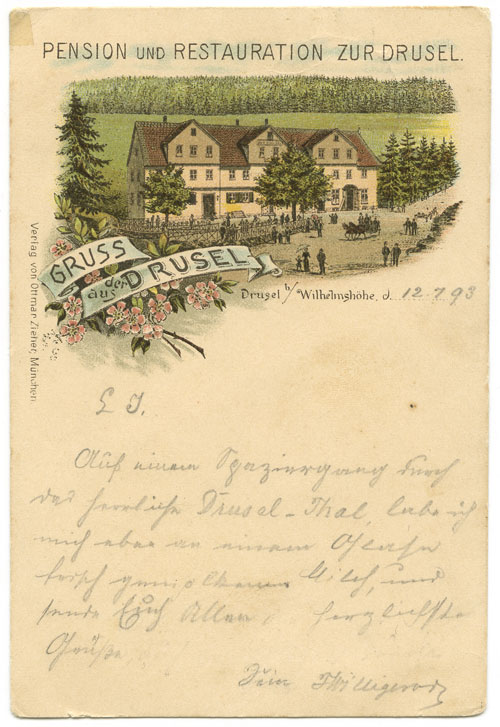 PENSION UND RESTAURATION ZUR DRUSEL.
GRUSS
aus der DRUSEL
Drusel b/ Wilhelmshöhe, d. 12.7 93
Verlag von Ottmar Zieher, München
L J.
Auf einem Spaziergang durch
das herrliche Drusel-Thal, labe ich
mich eben an einem Glase
frisch gemolkener Milch, und
sende Euch Allen, herzlichste
Grüße
Dein